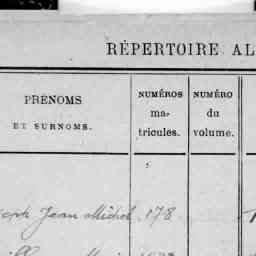 RÉPERTOIRE AL
PRÉNOMS
ET SURNOMS.
NUMÉROS
ma-
tricules.
NUMÉRO
du
volume.
Jean Michel 178